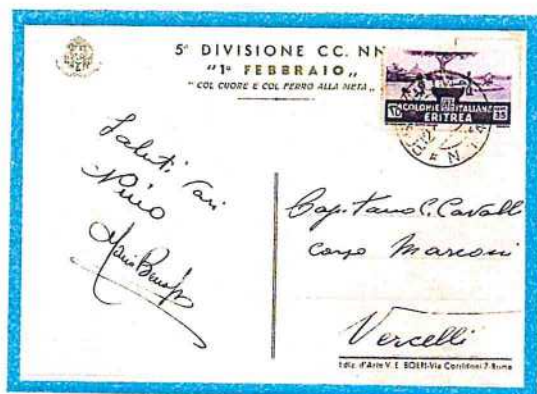 5ª DIVISIONE CC. NN
"1º FEBBRAIO„
"COL CUORE E COL FERRO ALLA META„
COLONIE ITALIANE
ERITREA
Saluti cari
Nino
Capitano C. Cavalli
corso Marconi
Vercelli
Ediz. d'Arte V. E. BOERI-Via Corridoni 7-Roma